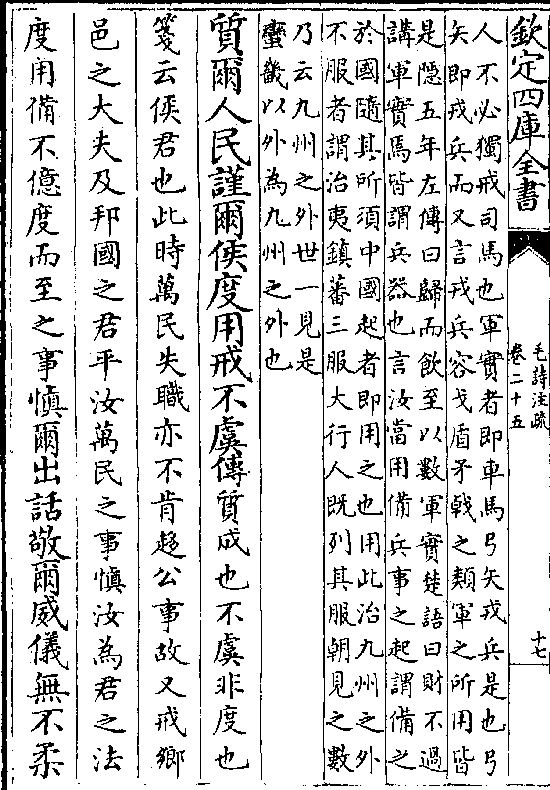 欽定四庫全書
毛詩注疏
卷二十五
十七
人不必獨戒司馬也軍實者即車馬弓矢戎兵是也弓
矢即戎兵而又言戎兵容戈盾矛戟之類軍之所用皆
是隱五年左傳曰歸而飲至以數軍實楚語曰財不過
講軍實焉皆謂兵器也言汝當用備兵事之起謂備之
於國隨其所須中國起者即用之也用此治九州之外
不服者謂治夷鎮蕃三服大行人既列其服朝見之數
乃云九州之外世一見是
蠻畿以外為九州之外也
質爾人民謹爾侯度用戒不虞傳質成也不虞非度也
箋云侯君也此時萬民失職亦不肯趨公事故又戒鄉
邑之大夫及邦國之君平汝萬民之事慎汝為君之法
度用備不億度而至之事慎爾出話敬爾威儀無不柔